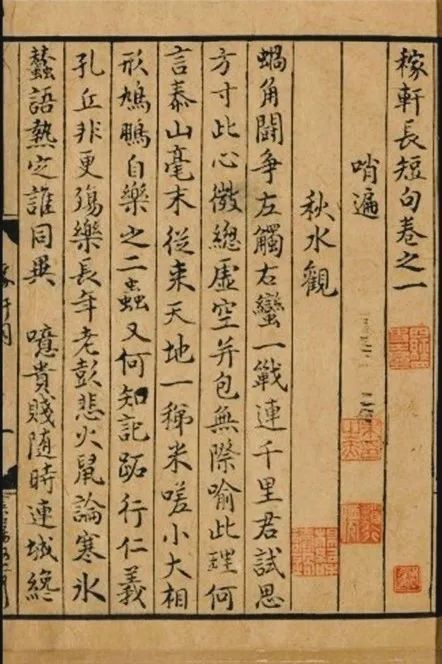 稼軒長短句卷之一
哨遍
秋水觀
蝸角鬪爭左觸右蠻一戰連千里君試思
方寸此心微總虛空并包無際喻此理何
言泰山毫末從來天地一稊米嗟小大相
形鳩鵬自樂之二蟲又何知記跖行仁義
孔丘非更殤樂長年老彭悲火鼠論寒氷
蠶語熱定誰同異 噫貴賤随時連城纔